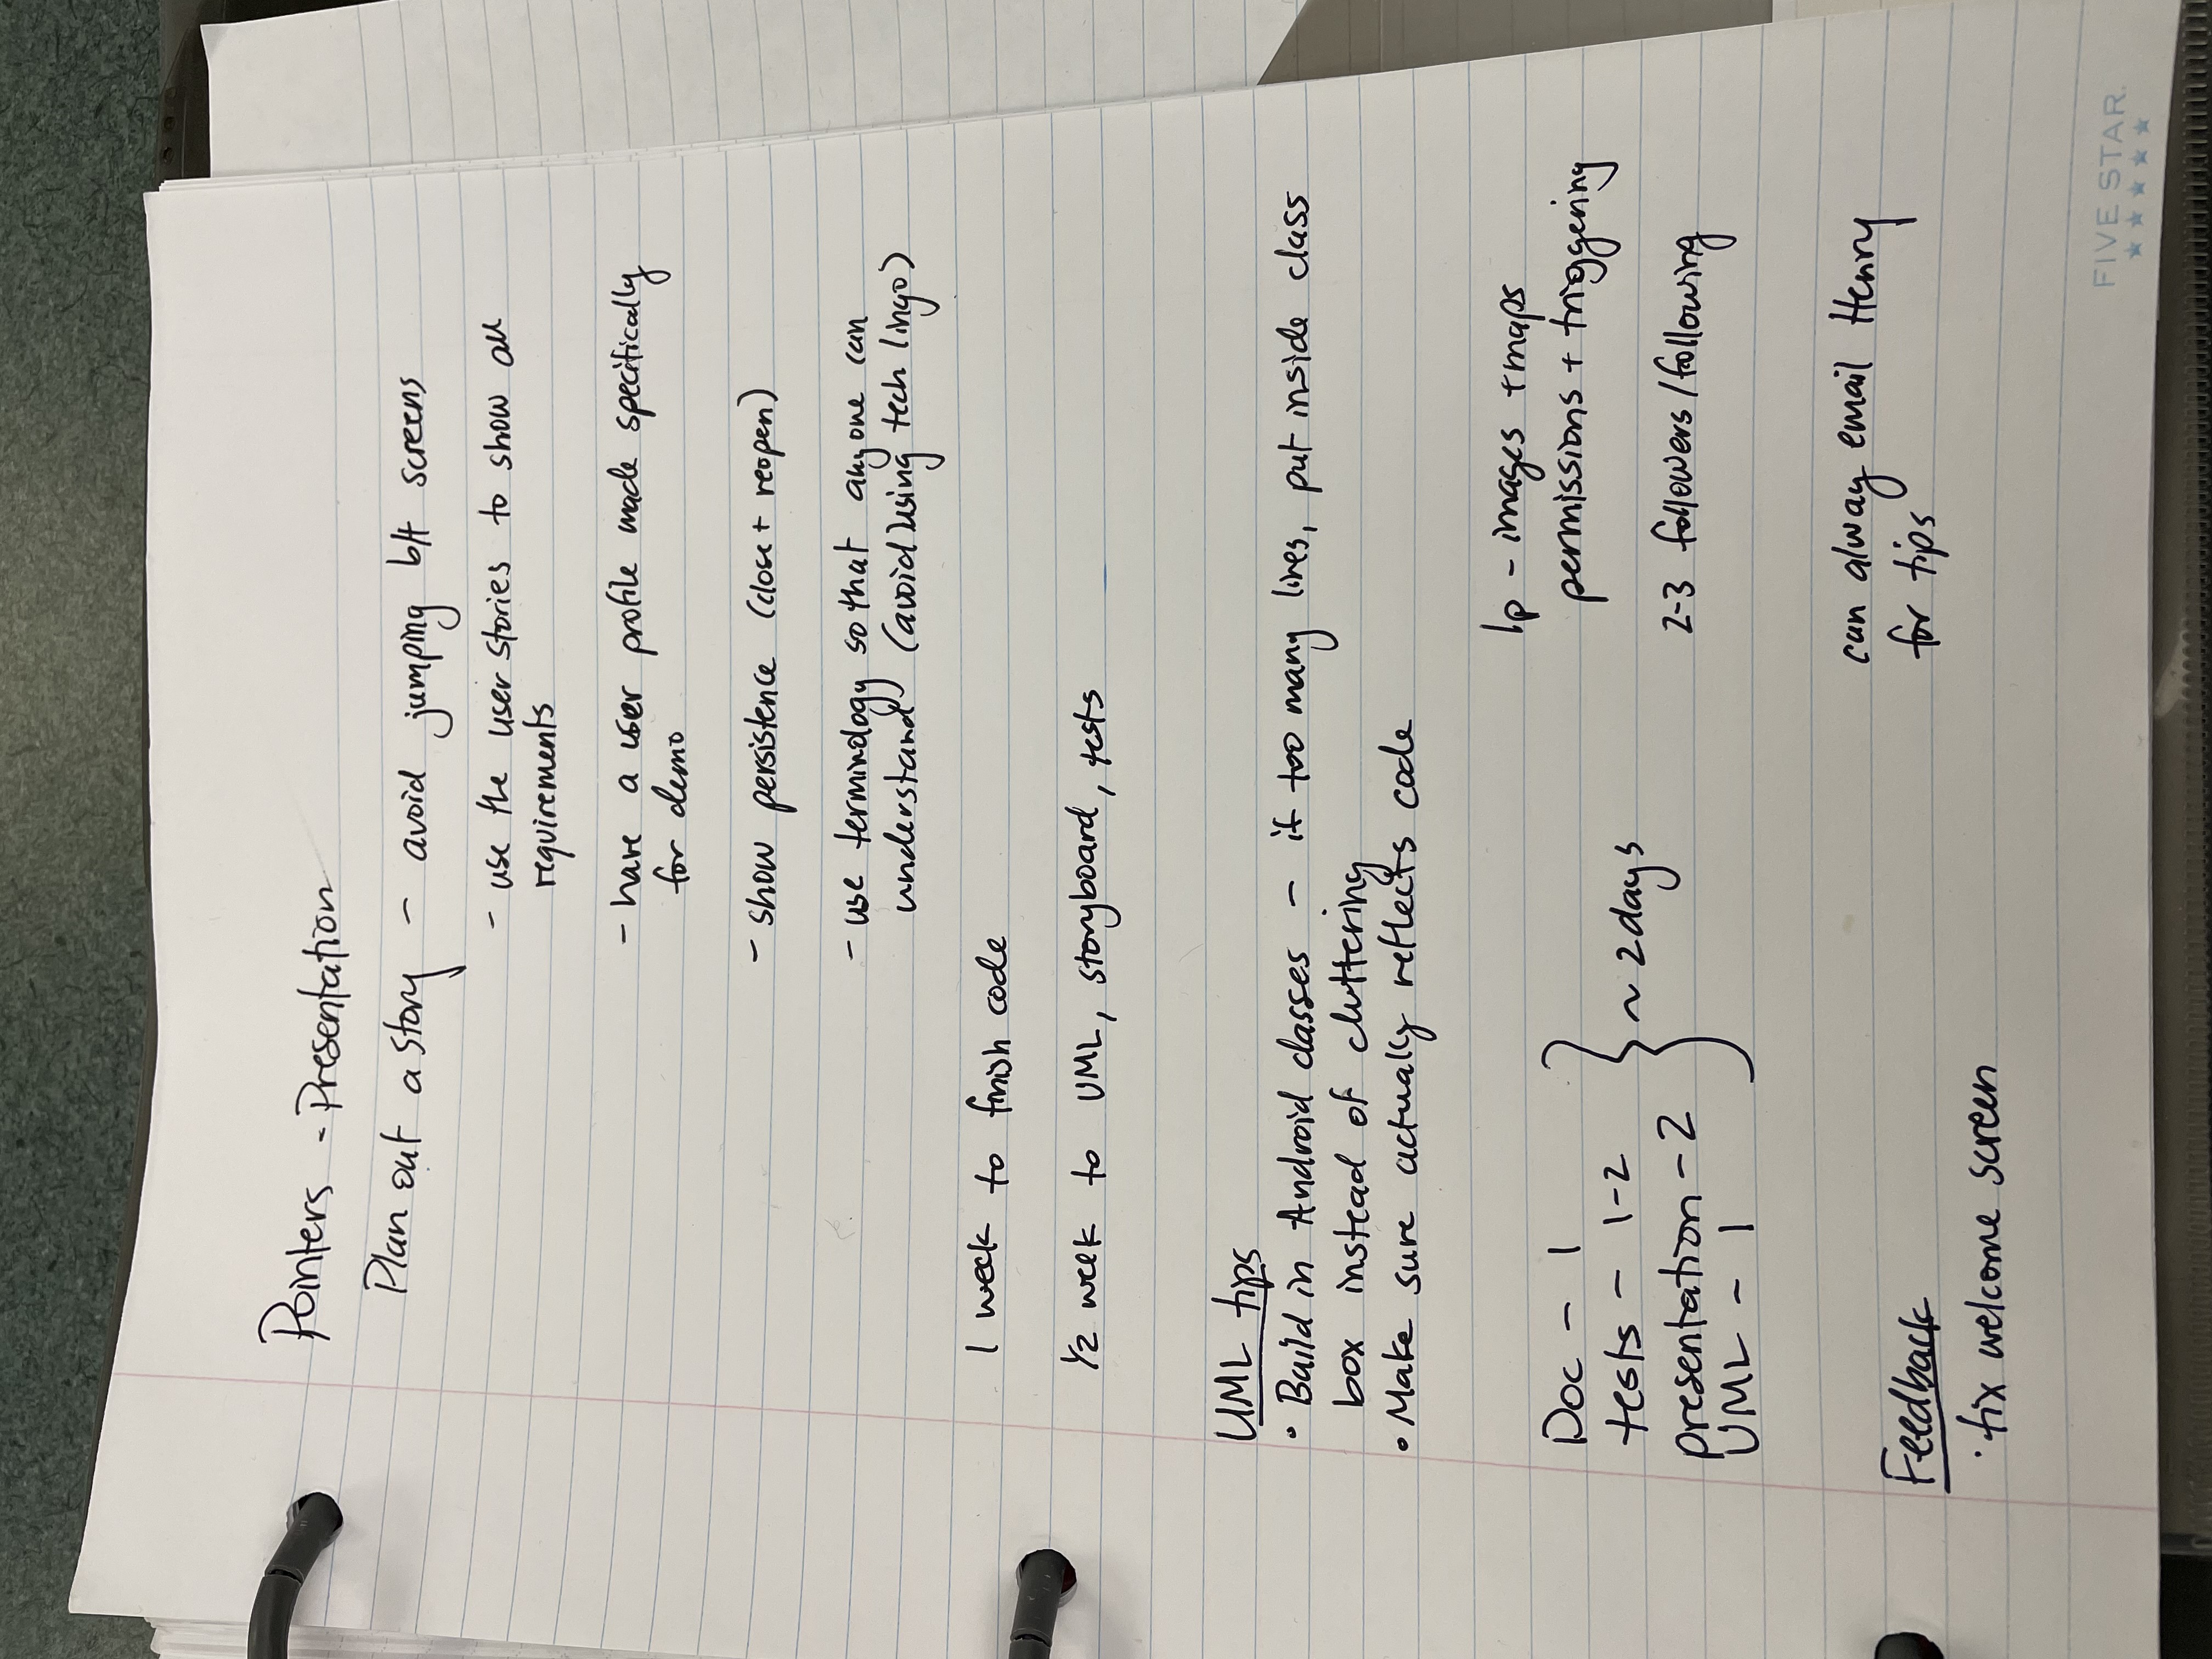 Pointers - Presentation
Plan out a story - avoid jumping b/t screens
- use the user stories to show all
requirements
- have a user profile made specifically
for demo
- show persistence (close + reopen)
- use terminology so that anyone can
understand (avoid using tech lingo)
1 week to finish code
1/2 week to UML, storyboard, tests
UML tips
• Build in Android classes - if too many lines, put inside class
box instead of cluttering
• Make sure actually reflects code
1p - images + maps
permissions + triggering
Doc - 1
tests - 1-2
presentation - 2
UML - 1
~ 2 days
2-3 followers/following
can alway email Henry
for tips
Feedback
• fix welcome screen
FIVE STAR.